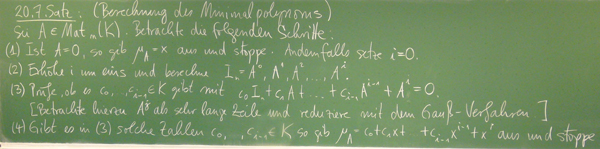 20.7. Satz: (Berechnung des Minimalpolynoms)
Sei A ∈ Mat_m(K). Betrachte die folgenden Schritte:
(1) Ist A=0, so geb μ_A = x aus und stoppe. Andernfalls setze i=0.
(2) Erhöhe i um eins und berechne I_n = A^0, A^1, A^2, ..., A^i.
(3) Prüfe, ob es c_0, ..., c_{i-1} ∈ K gibt mit c_0 I_n + c_1 A + ... + c_{i-1} A^{i-1} + A^i = 0.
[Betrachte hierzu A^k als sehr lange Zeile und reduziere mit dem Gauß-Verfahren]
(4) Gibt es in (3) solche Zahlen c_0, ..., c_{i-1} ∈ K so geb μ_A = c_0 + c_1 x + ... + c_{i-1} x^{i-1} + x^i aus und stoppe